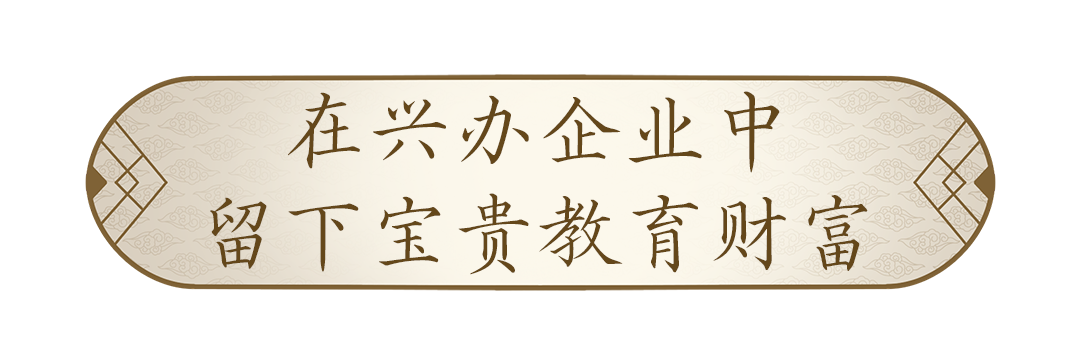 在兴办企业中
留下宝贵教育财富